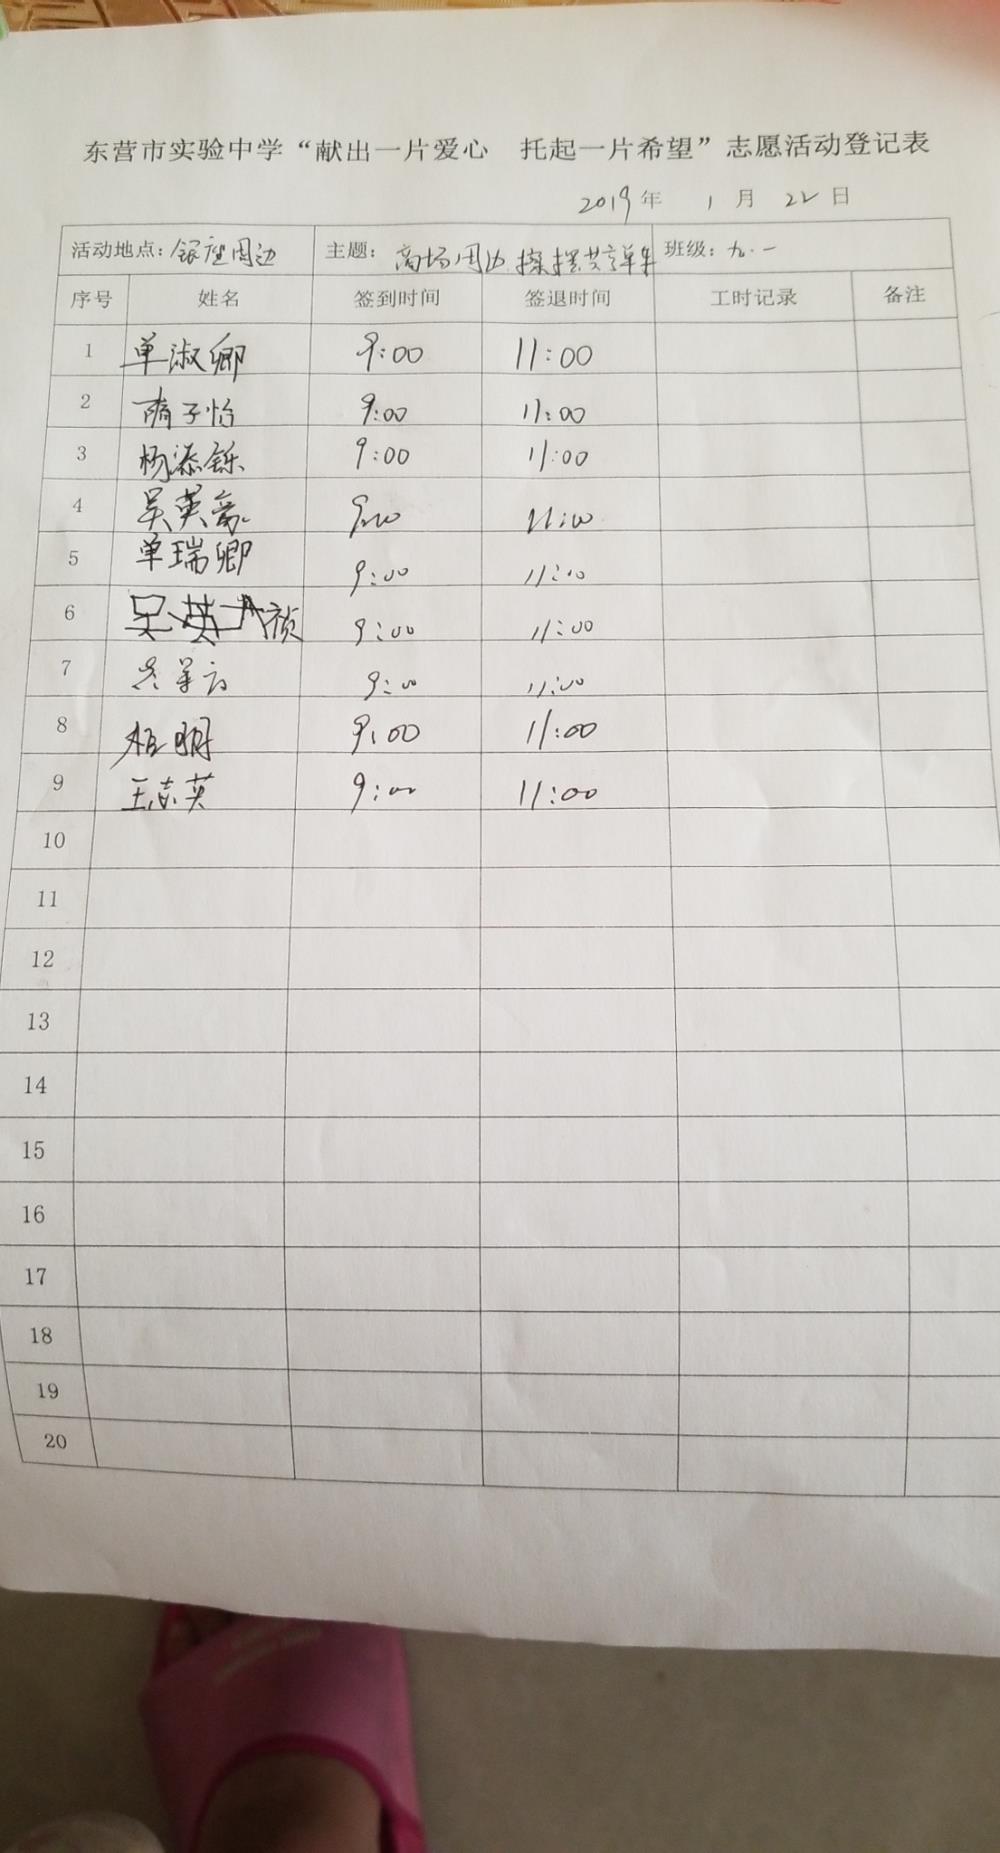 东营市实验中学“献出一片爱心 托起一片希望”志愿活动登记表
2019年 1月 22日
活动地点：银座周边 主题：商场周边擦摆共享单车 班级：九·一
序号 姓名 签到时间 签退时间 工时记录 备注
1 单淑卿 9:00 11:00
2 子怡 9:00 11:00
3 杨添铄 9:00 11:00
4 吴英豪 9:00 11:00
5 单瑞卿 9:00 11:00
6 吴英 祯 9:00 11:00
7 9:00 11:00
8 明 9:00 11:00
9 王志英 9:00 11:00
10
11
12
13
14
15
16
17
18
19
20